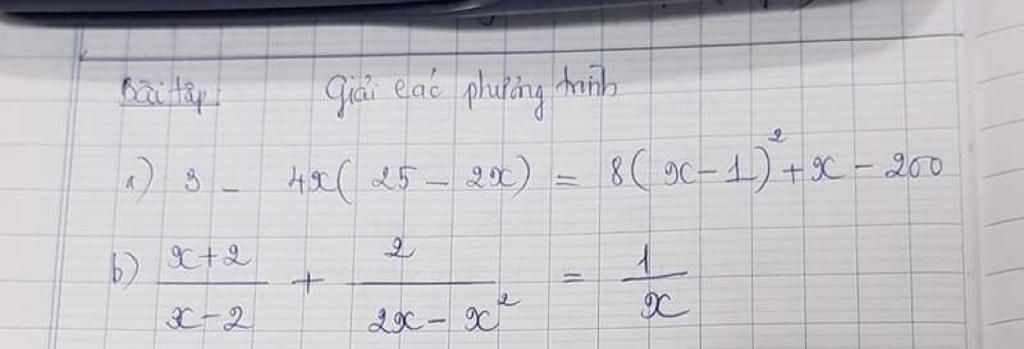 Bài tập Giải các phương trình
a) 3 - 4x(25 - 2x) = 8(x - 1)² + x - 200
b) \frac{x+2}{x-2} + \frac{2}{2x - x²} = \frac{1}{x}